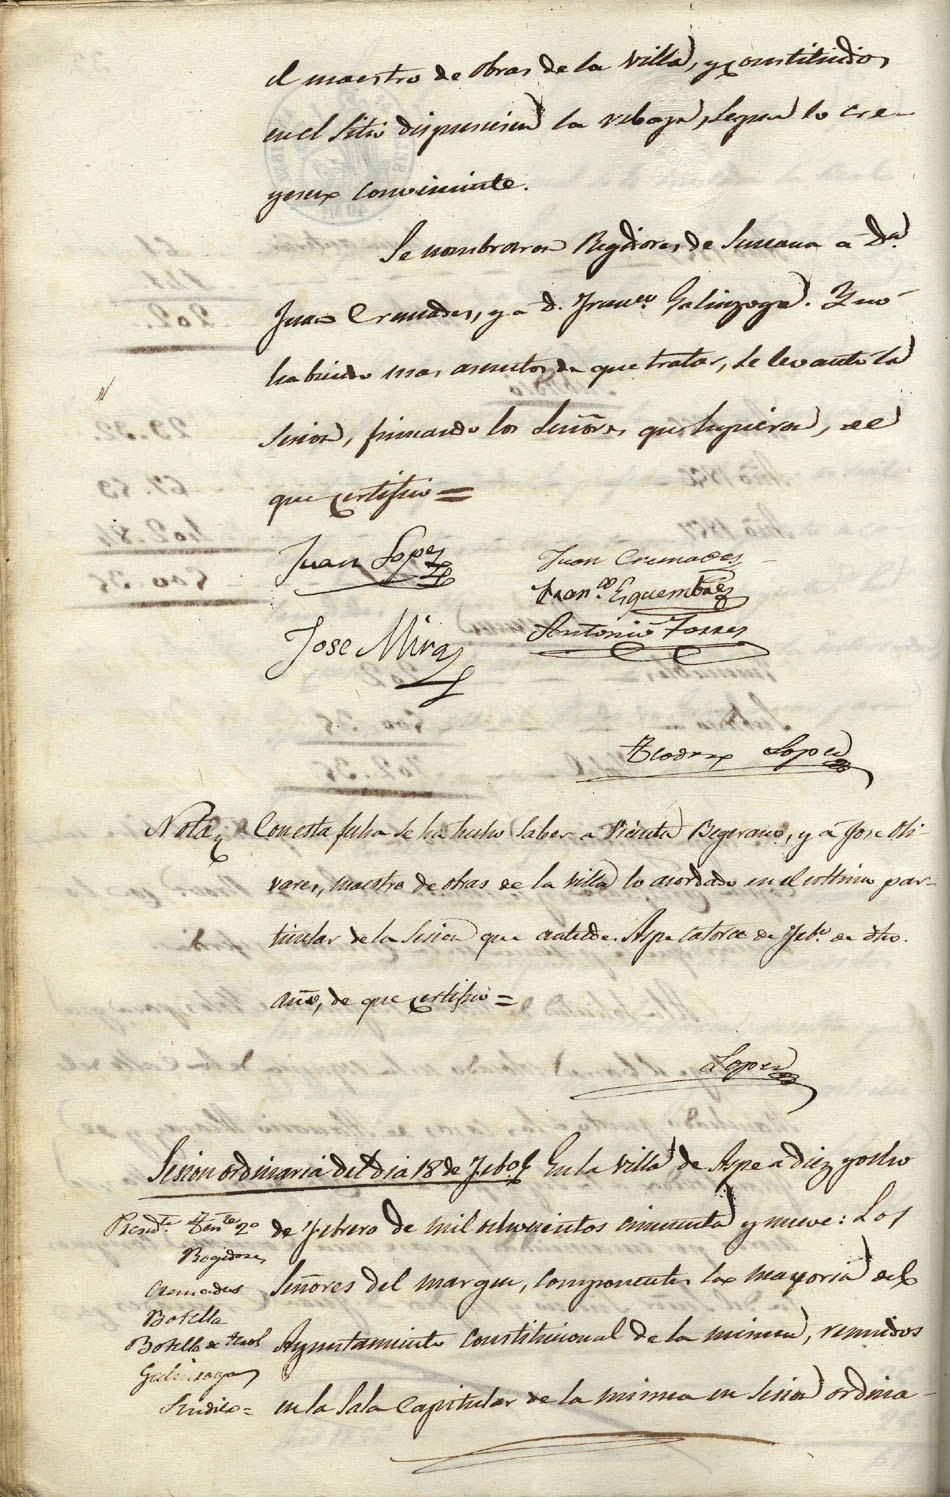 el maestro de obras de la villa, y constituidos
en el sitio dispusiesen la rebaja, segun lo cre-
yesen conviniente.
Se nombraron Regidores de Semana a Dn.
Juan Cremades, y a D. Franco. Galinzoga. Y no
habiendo mas asuntos de que tratar, se levantó la
sesion, firmando los Señores que supieron, de
que certifico =
Juan Lopez
Juan Cremades
Franco. Esquembre
Jose Mira
Antonio Torres
Lopez
Nota
Con esta fecha se ha hecho saber a Vicenta Begerano, y a Jose Oli-
vares, maestro de obras de la villa lo acordado en el ultimo par-
ticular de la sesion que antecede. Aspe catorce de Febo. de dho.
año, de que certifico =
Lopez
Sesion ordinaria del dia 18 de Febo.
En la villa de Aspe a diez y ocho
de Febrero de mil ochocientos cincuenta y nueve: Los
Señores del margen, componentes la mayoria del
Ayuntamiento constitucional de la misma, reunidos
en la Sala Capitular de la misma en sesion ordina-
Presidte. Tente. 2o
Regidores
Cremades
Botella
Botella
Galinsoga
Sindico =